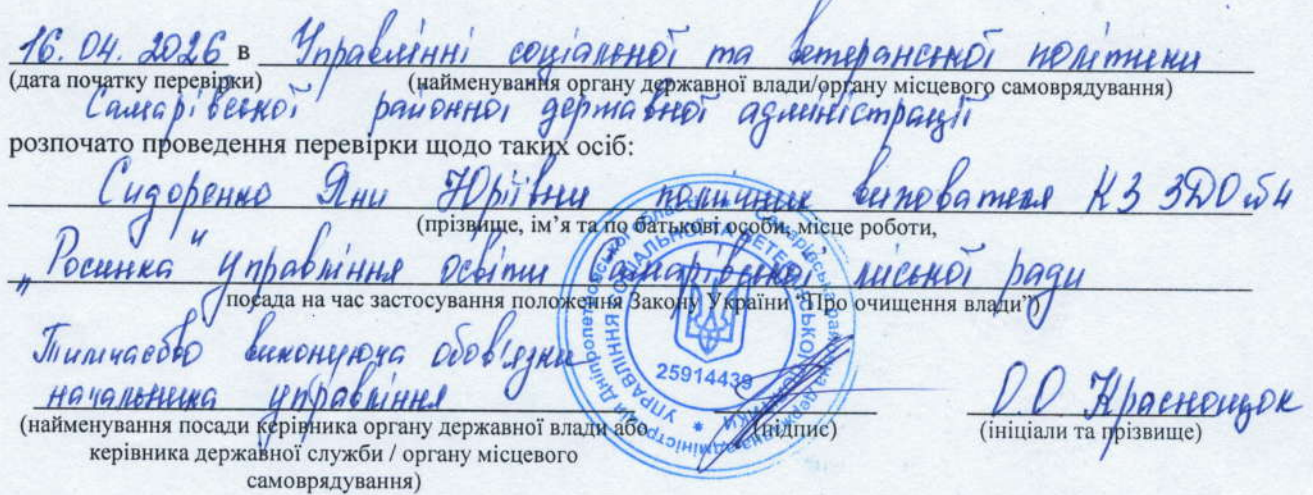 16.04.2026 в Управлінні соціальної та ветеранської політики
(дата початку перевірки) (найменування органу державної влади/органу місцевого самоврядування)
Самарівської районної державної адміністрації
розпочато проведення перевірки щодо таких осіб:
Сидоренко Яни Юріївни помічник вихователя КЗ ЗДО №4
(прізвище, ім’я та по батькові особи, місце роботи,
„Росинка" управління освіти Самарівської міської ради
посада на час застосування положення Закону України “Про очищення влади”)
Тимчасово виконуюча обов'язки
начальника управління О.О Краснощок
(найменування посади керівника органу державної влади або (підпис) (ініціали та прізвище)
керівника державної служби / органу місцевого
самоврядування)
25914439